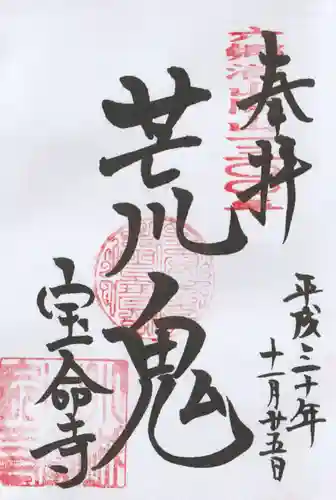 奉拝
平成三十年
十一月廿五日
荒川鬼
宝命寺